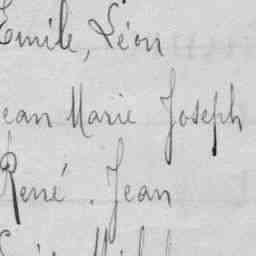 Emile, Léon
Jean Marie Joseph
René. Jean